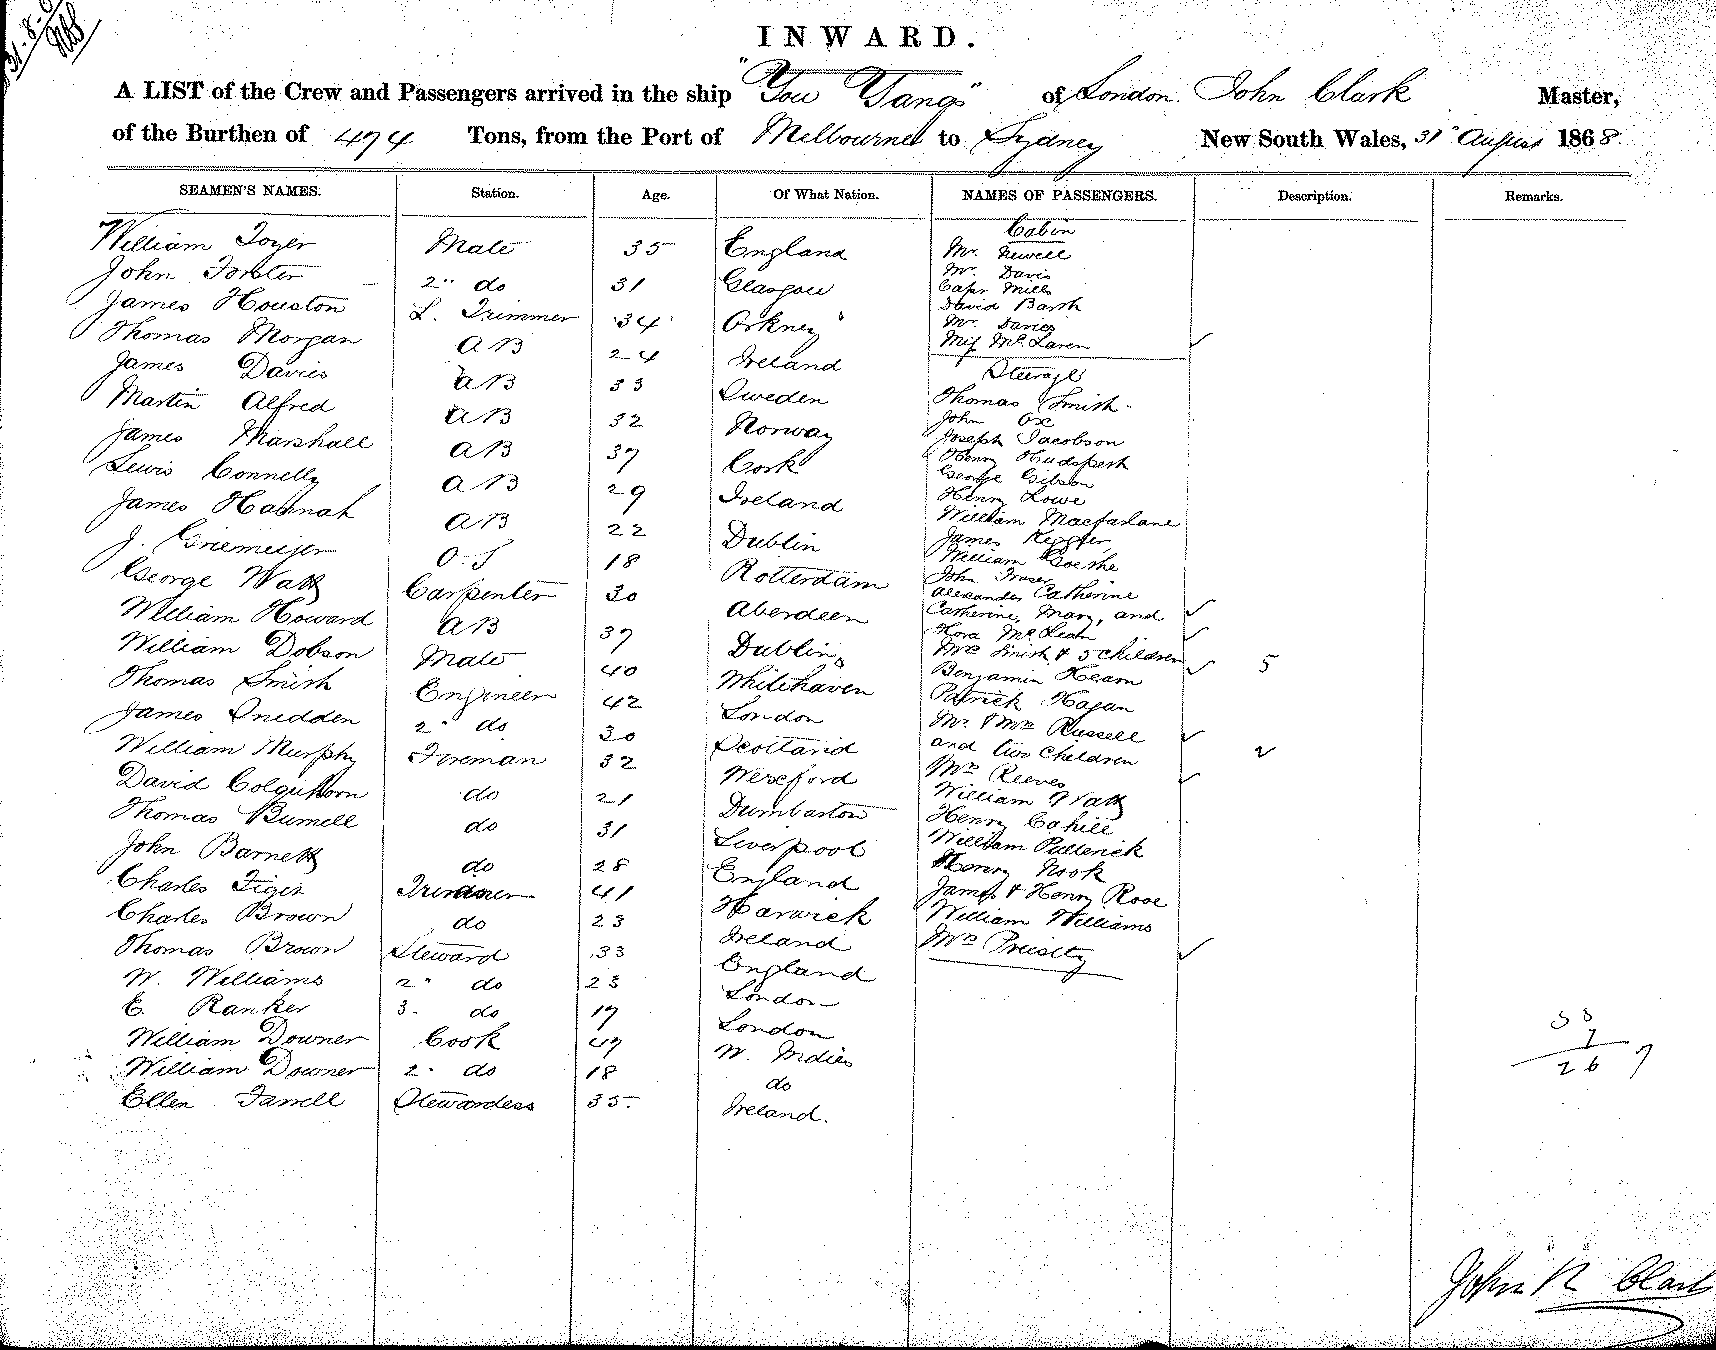 31-8-6
INWARD.
A LIST of the Crew and Passengers arrived in the ship "You Yangs" of London John Clark Master,
of the Burthen of 474 Tons, from the Port of Melbourne to Sydney New South Wales, 31 August 1868.
SEAMEN'S NAMES. Station. Age. Of What Nation. NAMES OF PASSENGERS. Description. Remarks.
William Tozer Mate 35 England
John Forster 2" do 31 Glasgow
James Houston L. Trimmer 34 Orkney
Thomas Morgan AB 24 Ireland
James Davies AB 33 Sweden
Martin Alfred AB 32 Norway
James Marshall AB 37 Cork
Lewis Connelly AB 29 Ireland
James Hannah AB 22 Dublin
J. Griemeijer O.S 18 Rotterdam
George Watt Carpenter 30 Aberdeen
William Howard AB 37 Dublin
William Dobson Mate 40 Whitehaven
Thomas Smith Engineer 42 London
James Snedden 2" do 30 Scotland
William Murphy Foreman 32 Wexford
David Colquhorn do 21 Dumbarton
Thomas Burnell do 31 Liverpool
John Barnett do 28 England
Charles Trimmer 41 Harwick
Charles Brown do 23 Ireland
Thomas Brown Steward 33 England
W. Williams 2" do 23 London
E. Ranker 3. do 19 London
William Downer Cook 49 W. Indies
William Downer 2. do 18 do
Ellen Farrell Stewardess 35. Ireland.
Cabin
Mr. Newell
Mr. Davis
Capn Mills
David Barth
Mr. Davies
Miss McLaren
Steerage
Thomas Smith
John Ox
Joseph Jacobson
Henry Hudspeth
George Gibson
Henry Lowe
William Macfarlane
James
William Goethe
John Fraser
Alexander Catherine
Catherine, Mary, and
Flora McLean
Mrs Smith & 5 children 5
Benjamin Hearn
Patrick Hagan
Mr. & Mrs Russell
and two children 2
Mrs Reeves
William Watt
Henry Cahill
William Pullenick
Henry Nook
James & Henry Rose
William Williams
Mrs Priestly
33
7
26 7
John R Clark